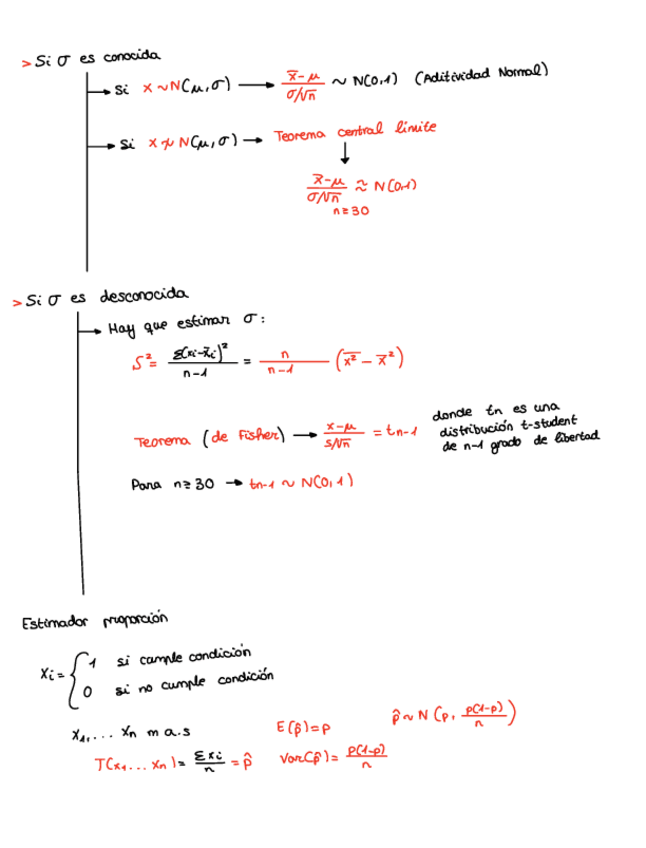 > Si σ es conocida
→ Si X ~ N(μ, σ) → x̄-μ / σ/√n ~ N(0,1) (Aditividad Normal)
→ Si X ≁ N(μ, σ) → Teorema central límite
↓
x̄-μ / σ/√n ≈ N(0,1)
n≥30
> Si σ es desconocida
→ Hay que estimar σ:
S²= Σ(xi-x̄i)² / n-1 = n / n-1 (x̄² - x̄²)
Teorema (de Fisher) → x-μ / s/√n = tn-1 donde tn es una
distribución t-student
de n-1 grado de libertad
Para n≥30 → tn-1 ~ N(0,1)
Estimador proporción
Xi = { 1 si cumple condición
0 si no cumple condición
X1,... Xn m.a.s E(p̂)=p p̂ ~ N (p, p(1-p) / n)
T(x1... xn) = Σxi / n = p̂ Var(p̂) = p(1-p) / n